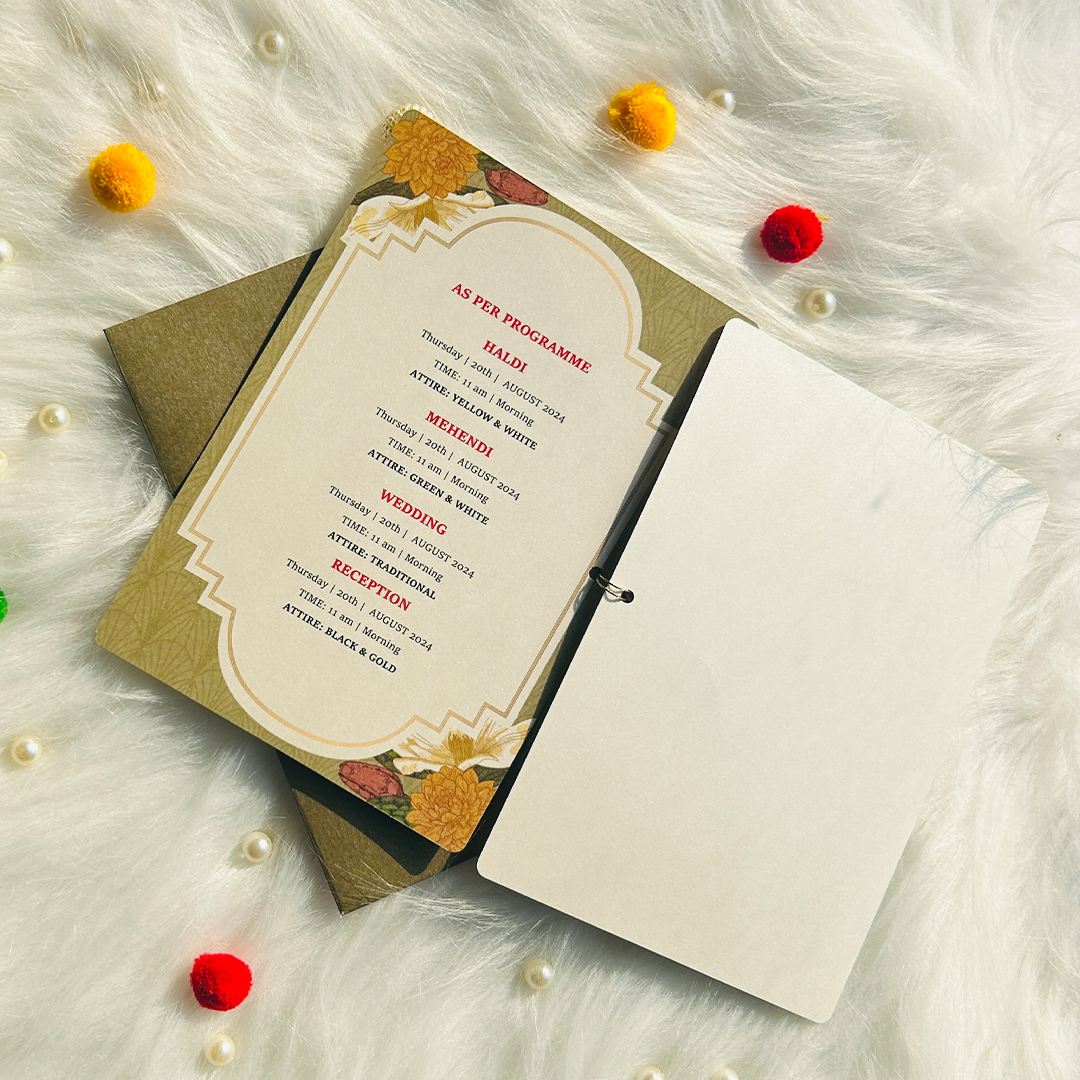 AS PER PROGRAMME
HALDI
Thursday | 20th | AUGUST 2024
TIME: 11 am | Morning
ATTIRE: YELLOW & WHITE
MEHENDI
Thursday | 20th | AUGUST 2024
TIME: 11 am | Morning
ATTIRE: GREEN & WHITE
WEDDING
Thursday | 20th | AUGUST 2024
TIME: 11 am | Morning
ATTIRE: TRADITIONAL
RECEPTION
Thursday | 20th | AUGUST 2024
TIME: 11 am | Morning
ATTIRE: BLACK & GOLD